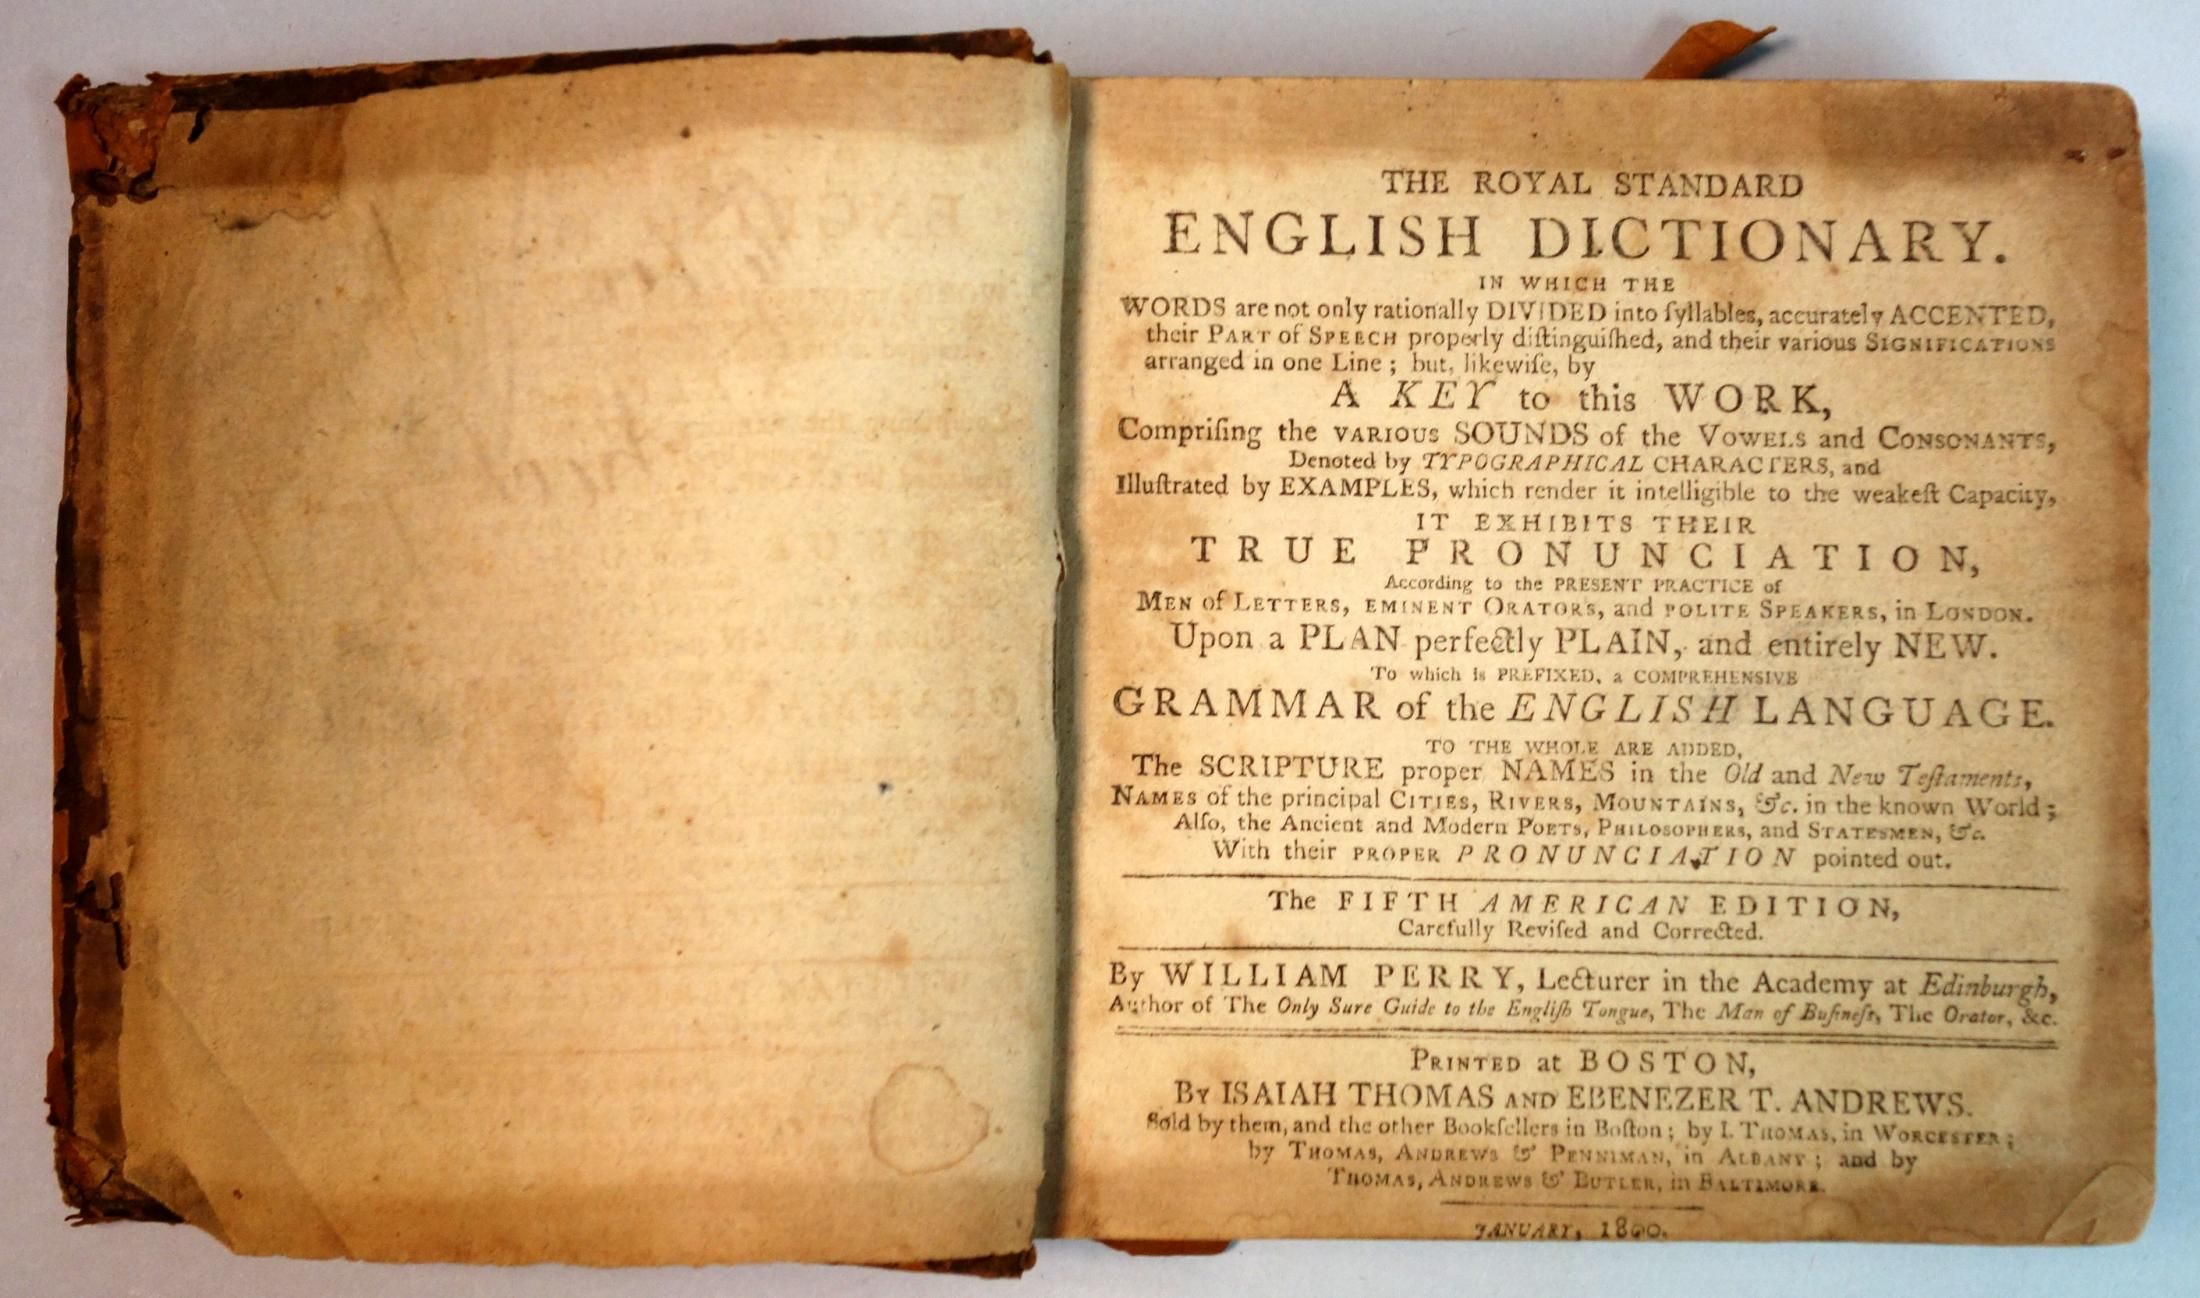 THE ROYAL STANDARD
ENGLISH DICTIONARY.
IN WHICH THE
WORDS are not only rationally DIVIDED into ſyllables, accurately ACCENTED,
their PART of SPEECH properly diſtinguiſhed, and their various SIGNIFICATIONS
arranged in one Line ; but, likewiſe, by
A KEY to this WORK,
Compriſing the VARIOUS SOUNDS of the VOWELS and CONSONANTS,
Denoted by TYPOGRAPHICAL CHARACTERS, and
Illuſtrated by EXAMPLES, which render it intelligible to the weakeſt Capacity,
IT EXHIBITS THEIR
TRUE PRONUNCIATION,
According to the PRESENT PRACTICE of
MEN of LETTERS, EMINENT ORATORS, and POLITE SPEAKERS, in LONDON.
Upon a PLAN perfectly PLAIN, and entirely NEW.
To which is PREFIXED, a COMPREHENSIVE
GRAMMAR of the ENGLISH LANGUAGE.
TO THE WHOLE ARE ADDED,
The SCRIPTURE proper NAMES in the Old and New Teſtaments,
NAMES of the principal CITIES, RIVERS, MOUNTAINS, &c. in the known World ;
Alſo, the Ancient and Modern POETS, PHILOSOPHERS, and STATESMEN, &c.
With their PROPER PRONUNCIATION pointed out.
The FIFTH AMERICAN EDITION,
Carefully Reviſed and Corrected.
By WILLIAM PERRY, Lecturer in the Academy at Edinburgh,
Author of The Only Sure Guide to the Engliſh Tongue, The Man of Buſineſs, The Orator, &c.
PRINTED at BOSTON,
BY ISAIAH THOMAS AND EBENEZER T. ANDREWS.
Sold by them, and the other Bookſellers in Boſton ; by I. THOMAS, in WORCESTER ;
by THOMAS, ANDREWS & PENNIMAN, in ALBANY ; and by
THOMAS, ANDREWS & BUTLER, in BALTIMORE.
JANUARY, 1800.